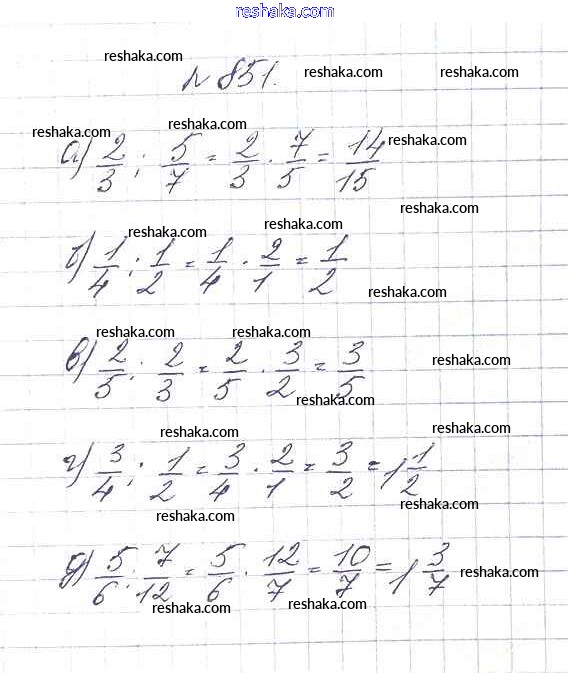 reshaka.com
reshaka.com
№ 851. reshaka.com reshaka.com
reshaka.com reshaka.com reshaka.com
а) 2/3 : 5/7 = 2/3 · 7/5 = 14/15
reshaka.com
reshaka.com
б) 1/4 : 1/2 = 1/4 · 2/1 = 1/2
reshaka.com
reshaka.com reshaka.com
в) 2/5 : 2/3 = 2/5 · 3/2 = 3/5 reshaka.com
reshaka.com
reshaka.com reshaka.com
г) 3/4 : 1/2 = 3/4 · 2/1 = 3/2 = 1 1/2
reshaka.com
reshaka.com
д) 5/6 : 7/12 = 5/6 · 12/7 = 10/7 = 1 3/7 reshaka.com
reshaka.com reshaka.com
reshaka.com reshaka.com